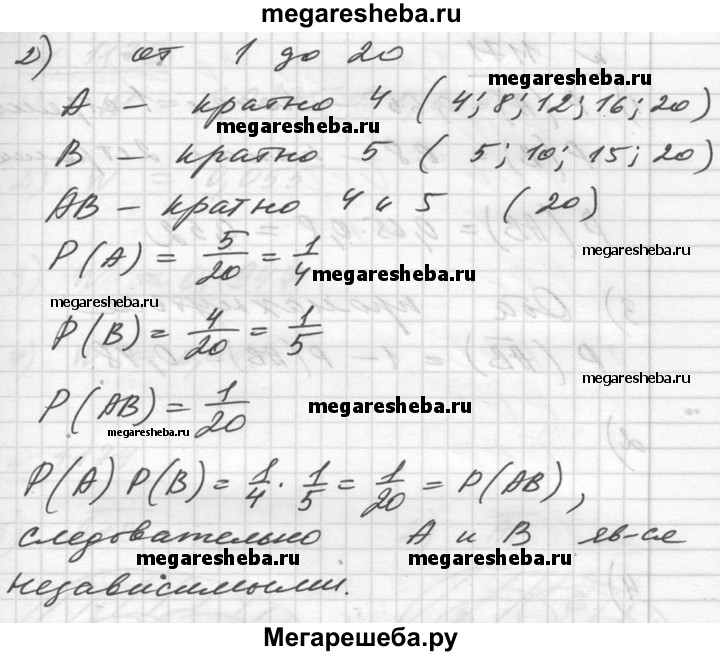 megaresheba.ru
2) от 1 до 20
megaresheba.ru
А – кратно 4 (4; 8; 12; 16; 20)
megaresheba.ru
В – кратно 5 (5; 10; 15; 20)
АВ – кратно 4 и 5 (20)
megaresheba.ru
P(A) = 5/20 = 1/4
megaresheba.ru
megaresheba.ru
P(B) = 4/20 = 1/5
megaresheba.ru
P(AB) = 1/20
megaresheba.ru
megaresheba.ru
P(A) P(B) = 1/4 · 1/5 = 1/20 = P(AB),
следовательно А и В яв-ся
megaresheba.ru
megaresheba.ru
независимыми.
Мегарешеба.ру